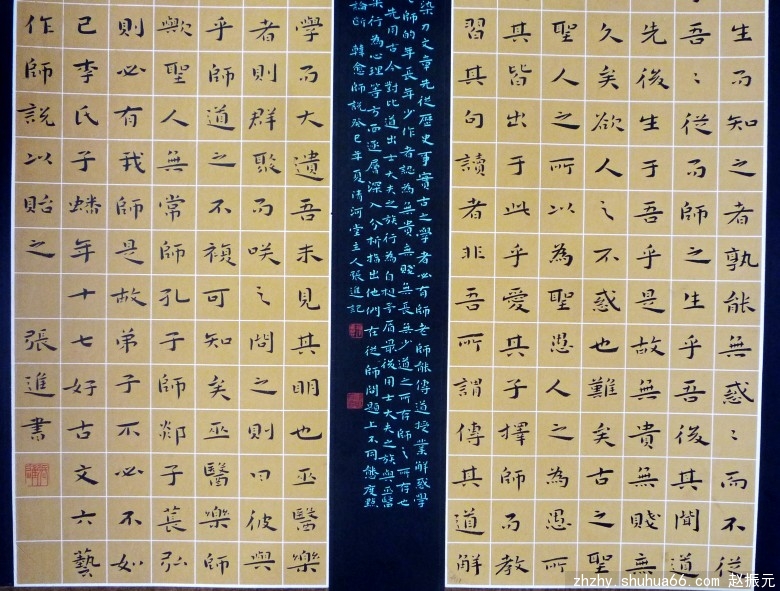 生而知之者孰能無惑〻而不從
吾〻從而師之生乎吾後其聞道
先後生于吾乎是故無貴無賤無
久矣欲人之不惑也難矣古之聖
聖人之所以為聖愚人之為愚所
其皆出于此乎愛其子擇師而教
習其句讀者非吾所謂傳其道解
染力文章先從歷史事實古之學者必有師老師能傳道授業解惑學
師的年長年少作者認為無貴無賤無長無少道之所存師之所存也
先用古今對比道出士大夫之族行為自相矛盾最後用士大夫之族與巫醫
樂行為心理等方面逐層深入分析指出他們在從師問題上不同態度點
論斷 韓愈師說癸巳年夏清河堂主人張進記
學而大遺吾未見其明也巫醫樂
者則群聚而咲之問之則曰彼與
乎師道之不復可知矣巫醫樂師
歟聖人無常師孔子師郯子萇弘
則必有我師是故弟子不必不如
已李氏子蟠年十七好古文六藝
作師說以貽之 張進書
zhzhy.shuhua66.com 赵振元